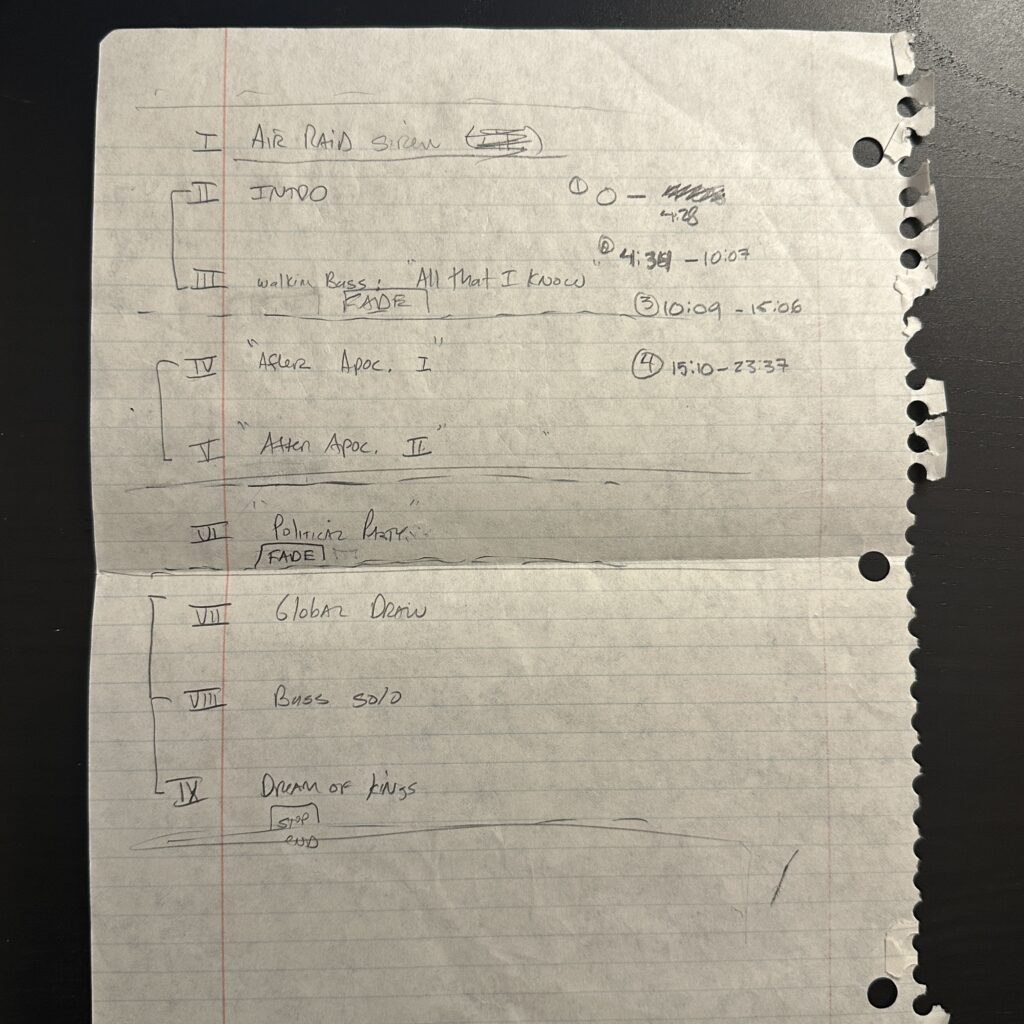 I AIR RAID siren
II INTRO
① 0 –
4:28
② 4:34 – 10:07
III walkin Bass: "All that I Know"
FADE
③ 10:09 – 15:06
IV "After Apoc. I"
④ 15:10 – 23:37
V "After Apoc. II"
VI "Political Party"
FADE
VII Global DRAW
VIII Bass solo
IX DREAM OF KINGS
STOP
END